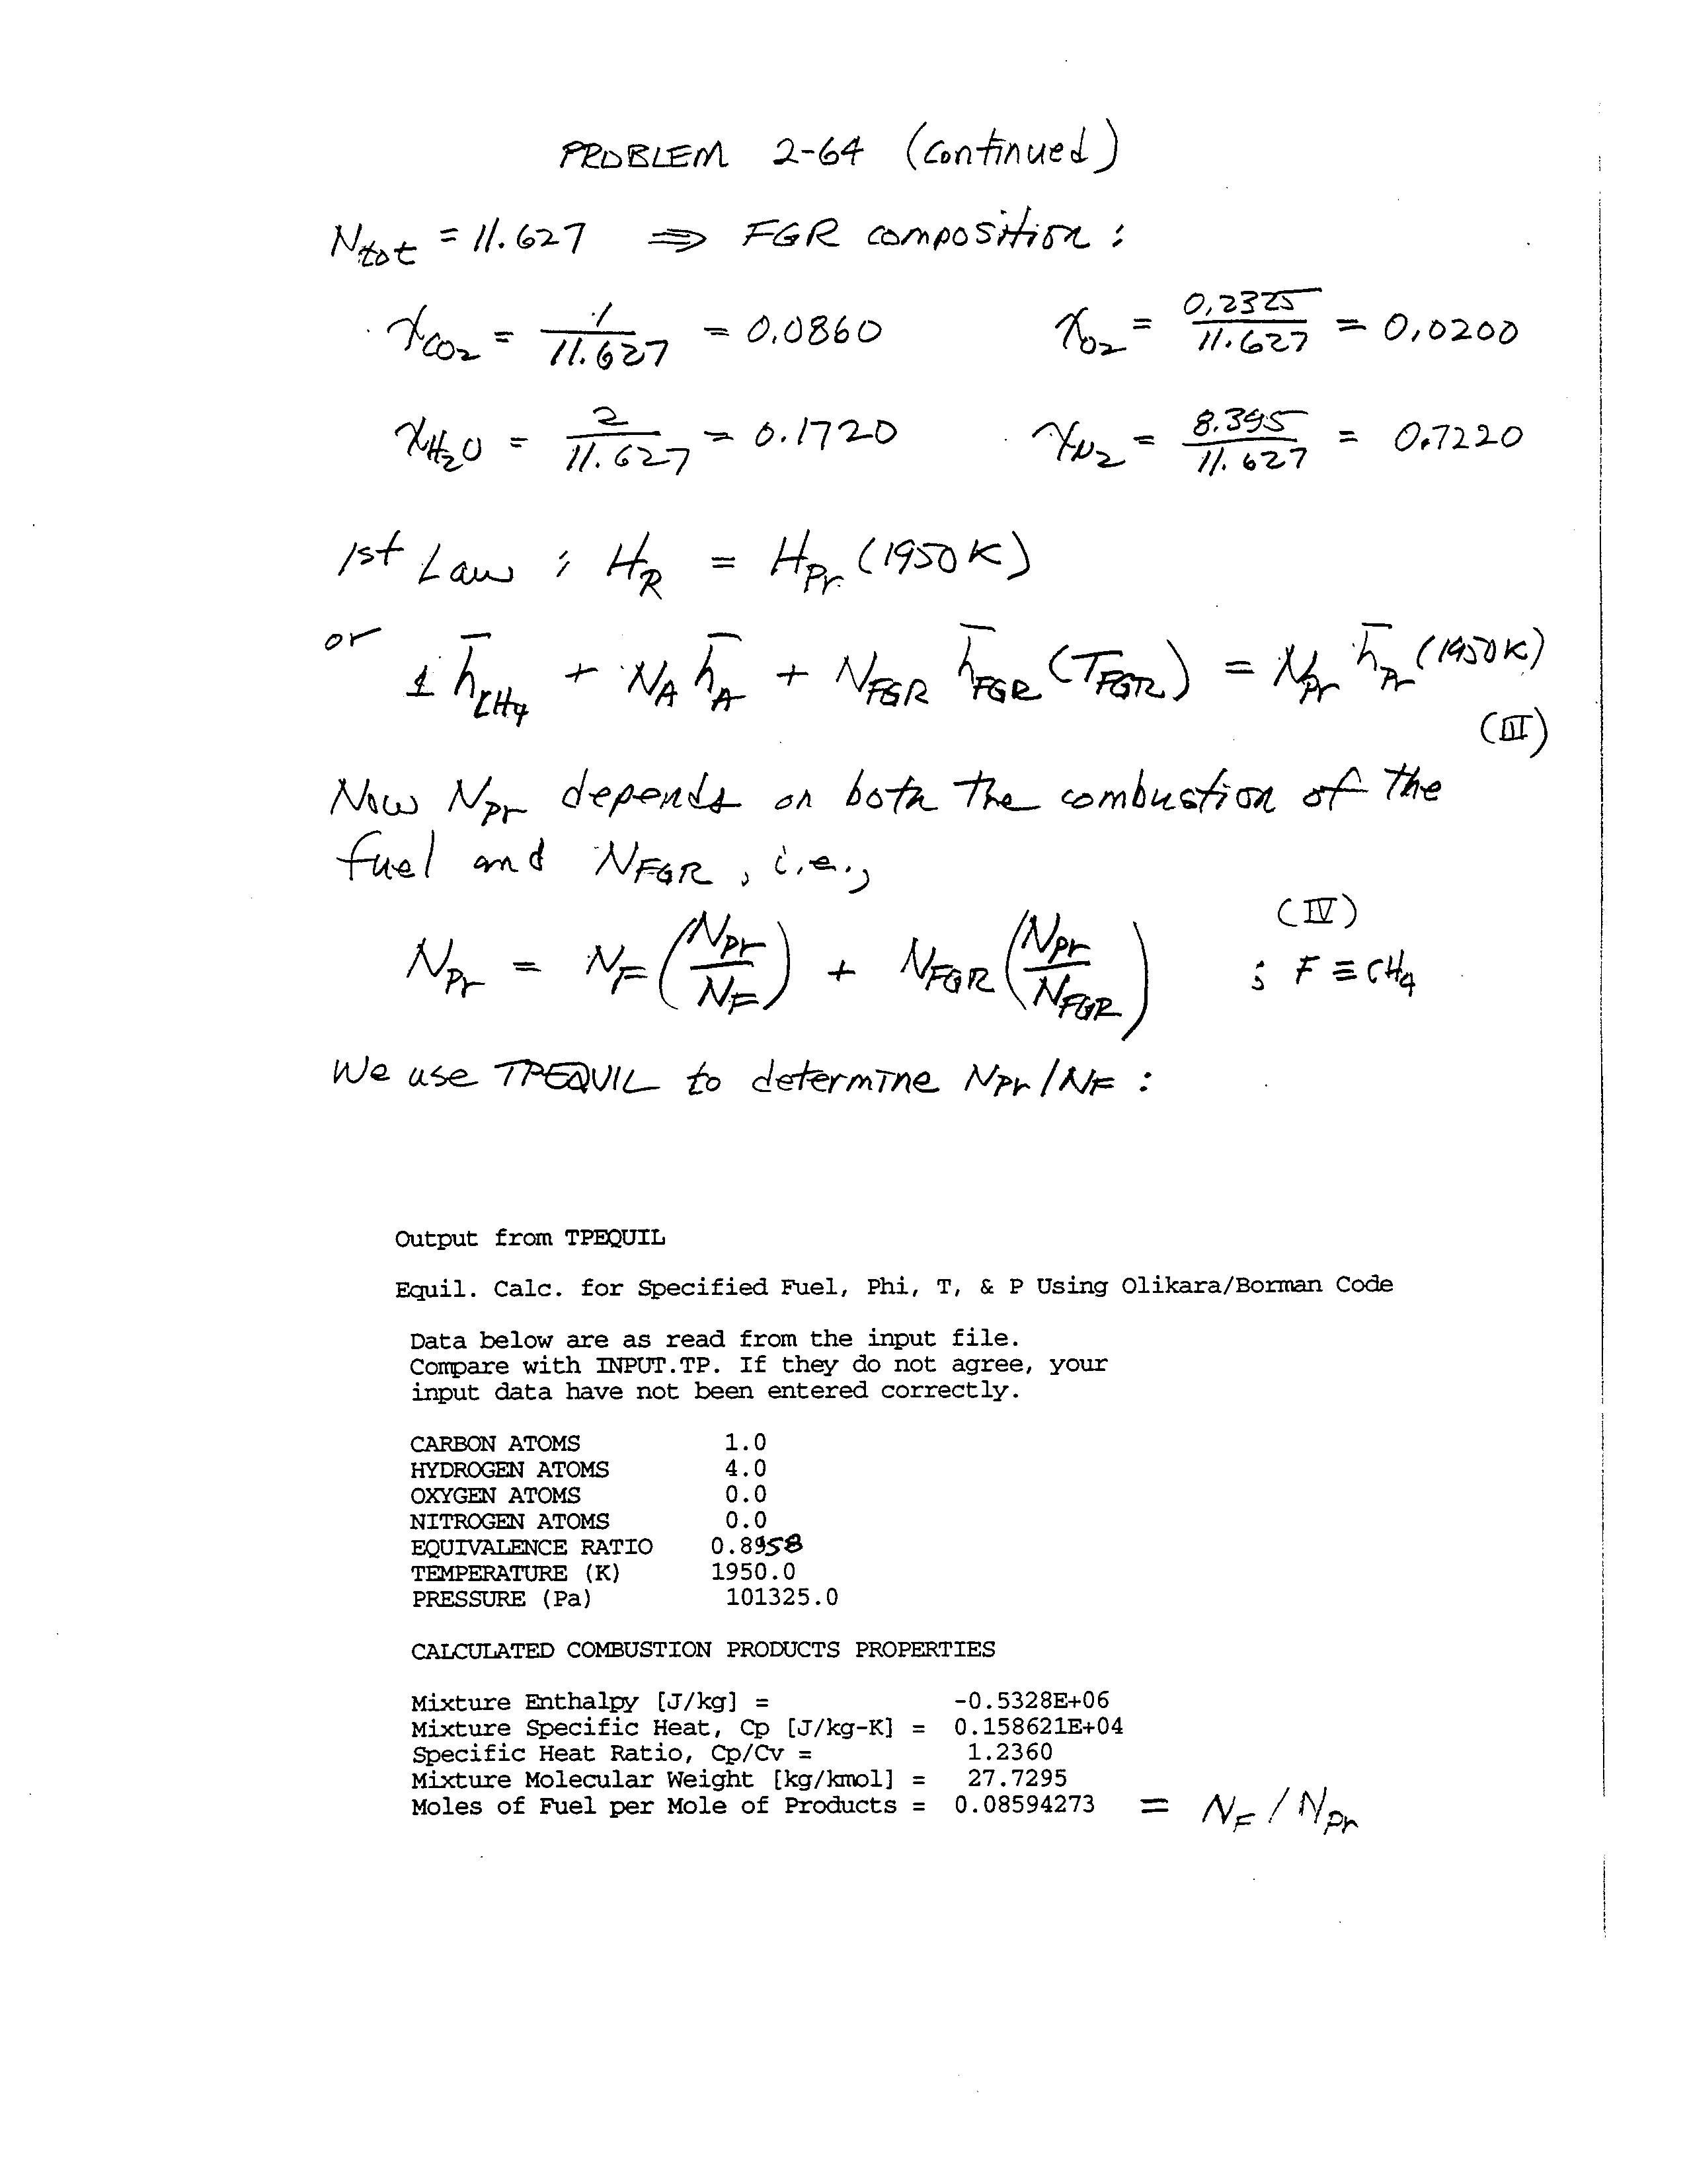 PROBLEM 2-64 (continued)
N_tot = 11.627 ⇒ FGR composition :
χ_CO2 = 1/11.627 = 0.0860    χ_O2 = 0.2325/11.627 = 0.0200
χ_H2O = 2/11.627 = 0.1720    χ_N2 = 8.395/11.627 = 0.7220
1st Law ; H_R = H_Pr (1950 K)
or 1 h̄_CH4 + N_A h̄_A + N_FGR h̄_FGR (T_FGR) = N_Pr h̄_Pr (1950K)
(III)
Now N_Pr depends on both the combustion of the
fuel and N_FGR, i.e.,
(IV)
N_Pr = N_F (N_Pr/N_F) + N_FGR (N_Pr/N_FGR) ; F ≡ CH4
We use TPEQUIL to determine N_Pr/N_F :
Output from TPEQUIL
Equil. Calc. for Specified Fuel, Phi, T, & P Using Olikara/Borman Code
Data below are as read from the input file.
Compare with INPUT.TP. If they do not agree, your
input data have not been entered correctly.
CARBON ATOMS 1.0
HYDROGEN ATOMS 4.0
OXYGEN ATOMS 0.0
NITROGEN ATOMS 0.0
EQUIVALENCE RATIO 0.8958
TEMPERATURE (K) 1950.0
PRESSURE (Pa) 101325.0
CALCULATED COMBUSTION PRODUCTS PROPERTIES
Mixture Enthalpy [J/kg] = -0.5328E+06
Mixture Specific Heat, Cp [J/kg-K] = 0.158621E+04
Specific Heat Ratio, Cp/Cv = 1.2360
Mixture Molecular Weight [kg/kmol] = 27.7295
Moles of Fuel per Mole of Products = 0.08594273 = N_F / N_Pr